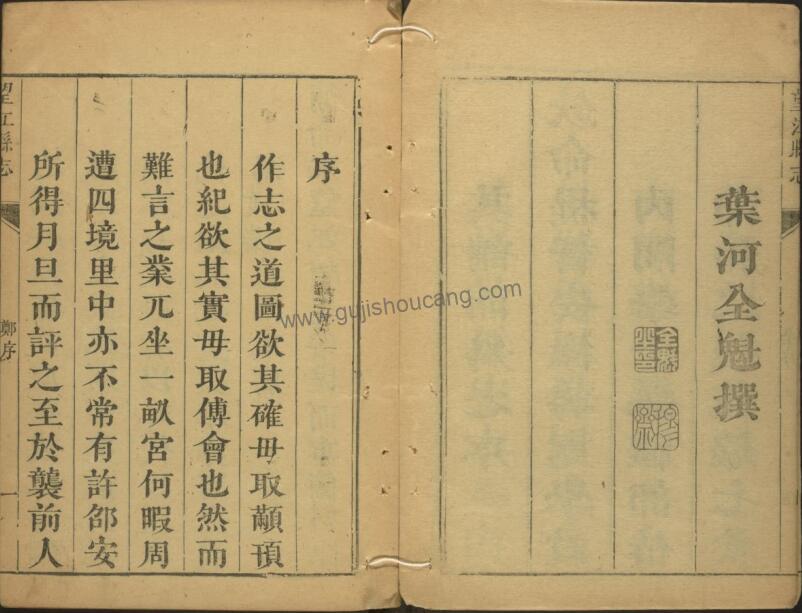 望江縣志
葉河全魁撰
全魁之印
www.gujishoucang.com
序
作志之道圖欲其確毋取顢頇
也紀欲其實毋取傅會也然而
難言之業兀坐一畝宮何暇周
遭四境里中亦不常有許邵安
所得月旦而評之至於襲前人
望江縣志
鄭序
一